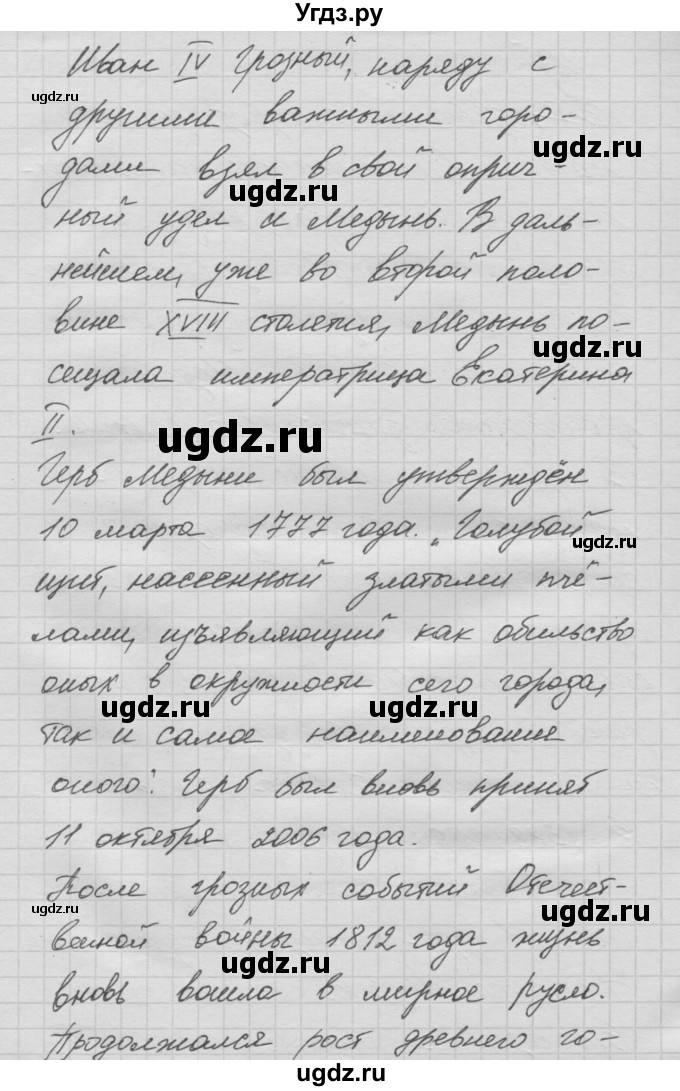 Угдз.ру
Иван IV Грозный, наряду с
другими важными горо-
дами взял в свой оприч-
ный удел и Медынь. В даль-
нейшем, уже во второй поло-
вине XVIII столетия, Медынь по-
сещала императрица Екатерина
II.
Герб Медыни был утверждён
10 марта 1777 года. „Голубой
щит, насеенный златыми пчё-
лами, изъявляющий как обильство
оных в окружности сего города,
так и самое наименование
оного". Герб был вновь принят
11 октября 2006 года.
После грозных событий Отечест-
венной войны 1812 года жизнь
вновь вошла в мирное русло.
Продолжался рост древнего го-
ugdz.ru
ugdz.ru
ugdz.ru
ugdz.ru
ugdz.ru
ugdz.ru
ugdz.ru
ugdz.ru
ugdz.ru
ugdz.ru
ugdz.ru
ugdz.ru
ugdz.ru
ugdz.ru